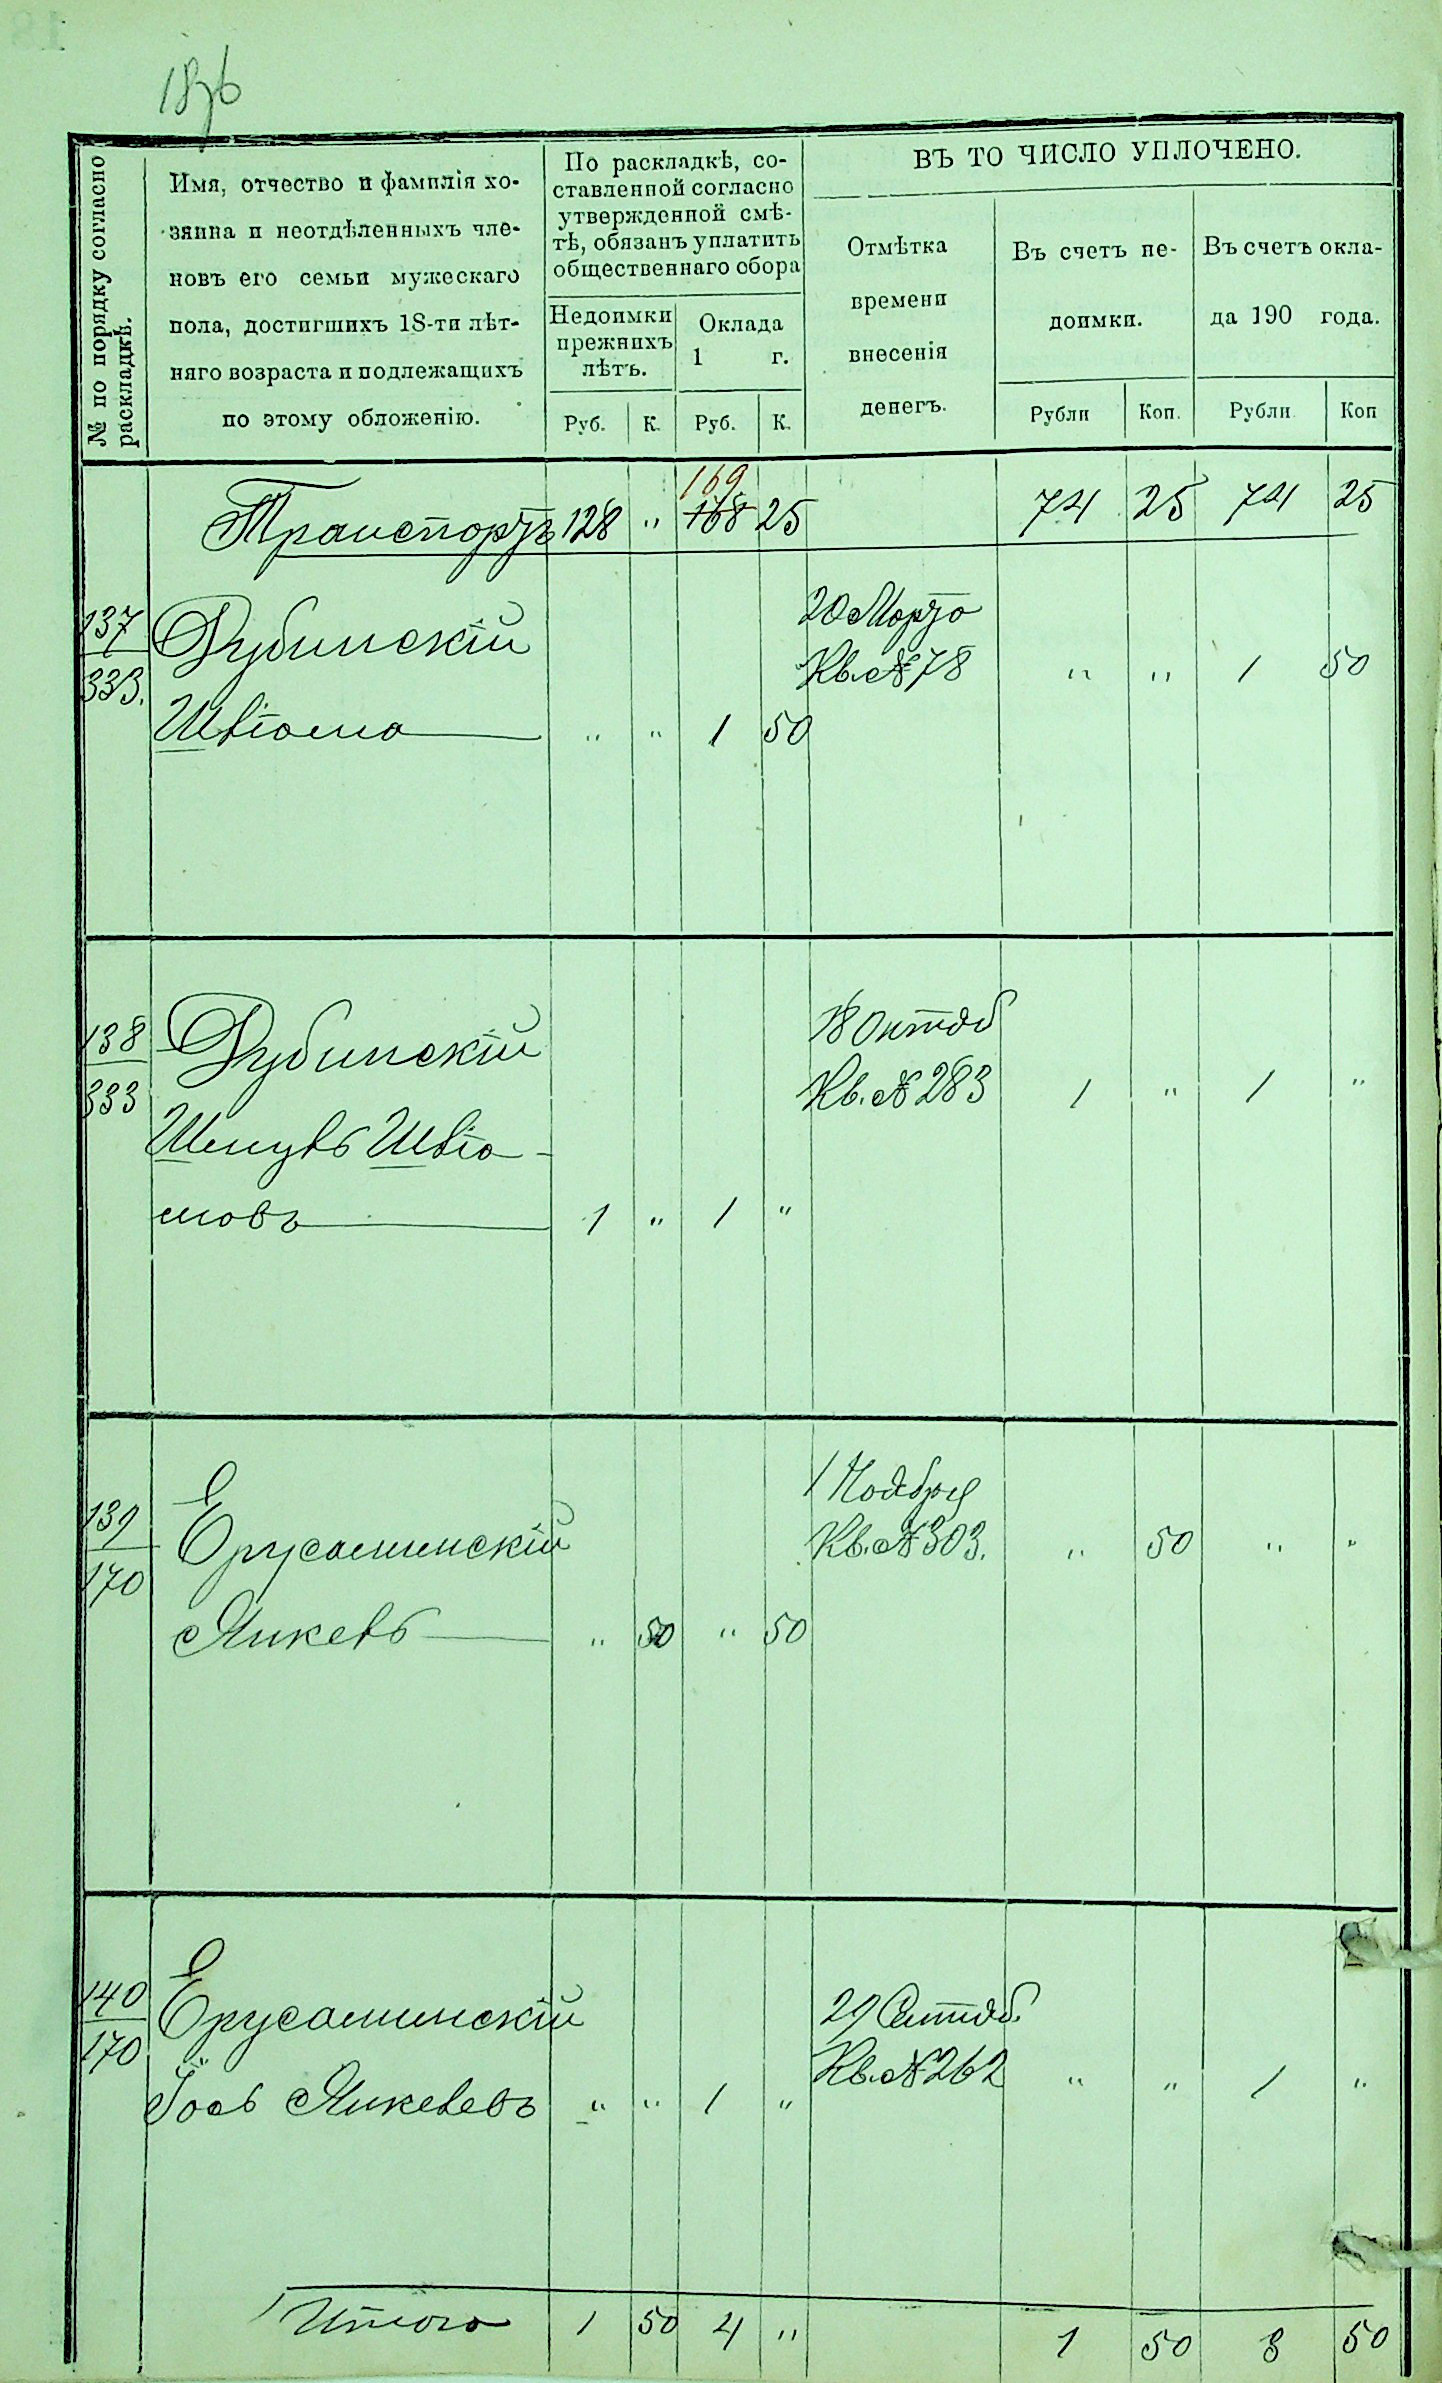 1896
№ по порядку согласно раскладкѣ.
Имя, отчество и фамилія хо-
зяина и неотдѣленныхъ чле-
новъ его семьи мужескаго
пола, достигшихъ 18-ти лѣт-
няго возраста и подлежащихъ
по этому обложенію.
По раскладкѣ, со-
ставленной согласно
утвержденной смѣ-
тѣ, обязанъ уплатить
общественнаго сбора
Недоимки
прежнихъ
лѣтъ.
Оклада
1 г.
Руб. К. Руб. К.
ВЪ ТО ЧИСЛО УПЛОЧЕНО.
Отмѣтка
времени
внесенія
денегъ.
Въ счетъ не-
доимки.
Въ счетъ окла-
да 190 года.
Рубли Коп. Рубли Коп
169
Транспортъ 128 " 168 25 74 25 74 25
137
333.
Рубинскій
Швіама " " 1 50
20 Марта
Кв. № 78 " " 1 50
138
333
Рубинскій
Шмуль Швіа-
мовъ 1 " 1 "
18 Октяб
Кв. № 283 1 " 1 "
139
170
Ерусалимскій
Янкель " 50 " 50
1 Ноября
Кв. № 303. " 50 " "
140
170
Ерусалимскій
Іось Янкелевъ " " 1 "
29 Сентяб.
Кв. № 262 " " 1 "
Итого 1 50 4 " 1 50 3 50